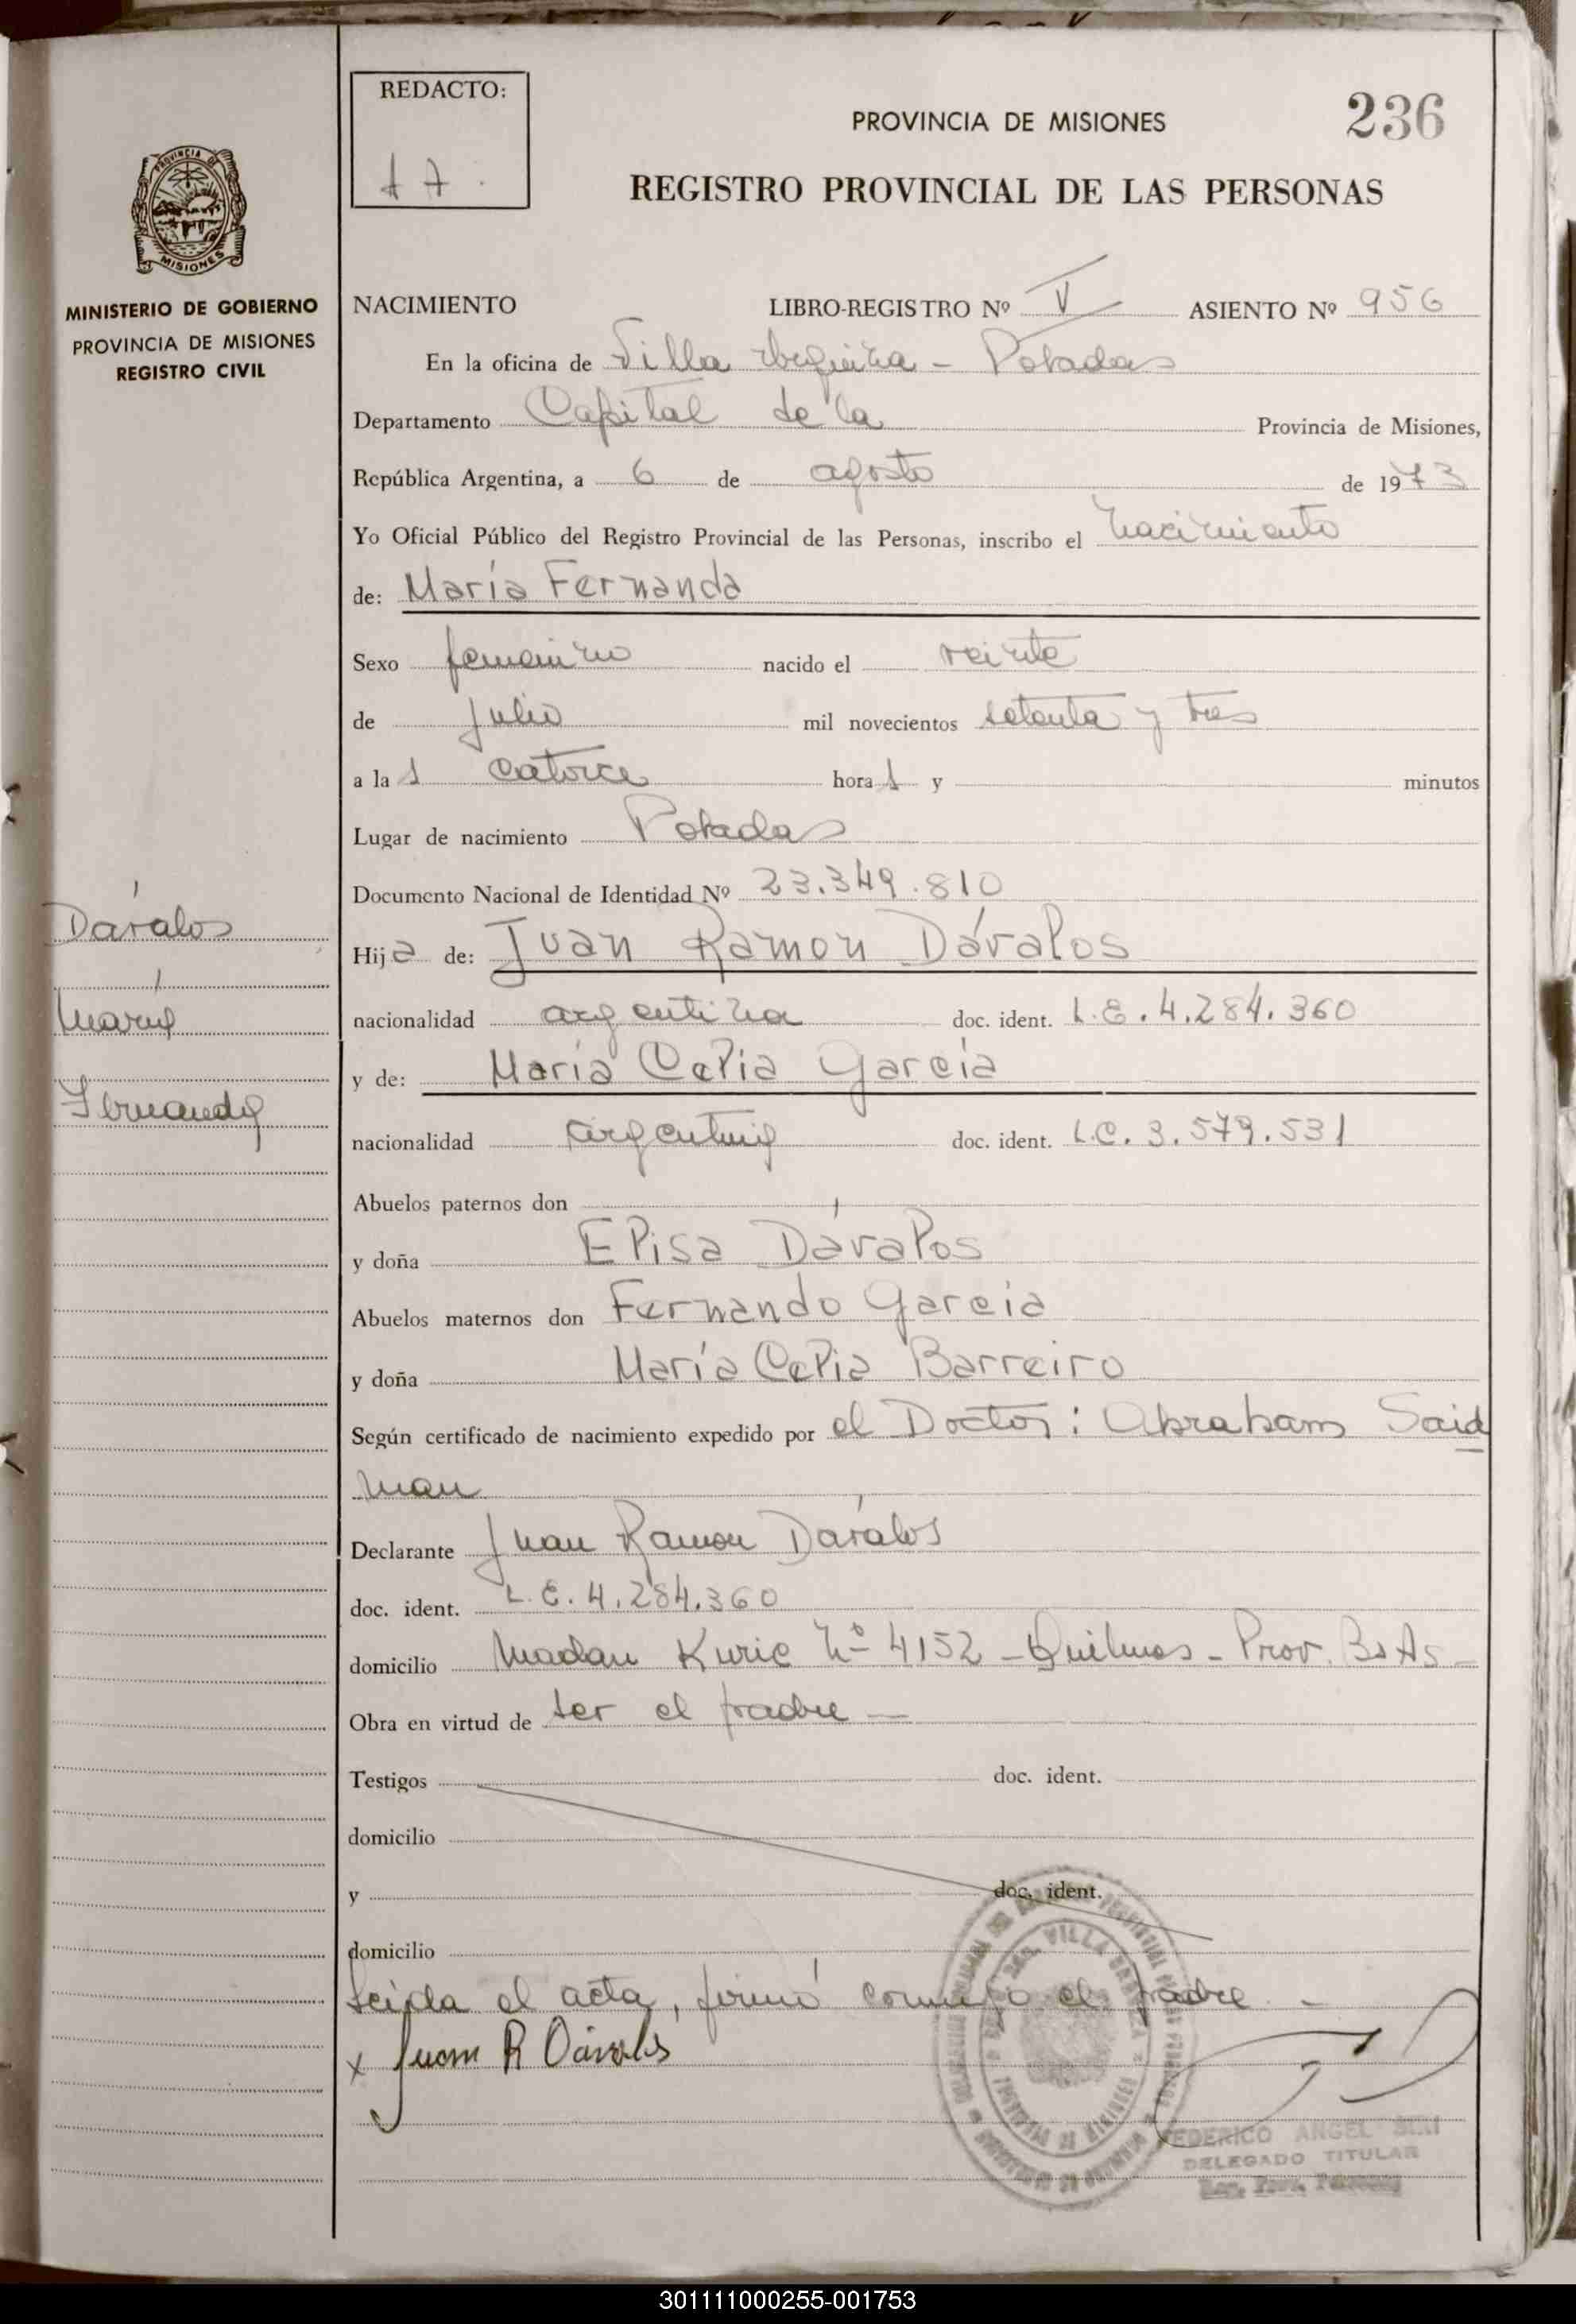 REDACTO:
17.
PROVINCIA DE MISIONES
236
REGISTRO PROVINCIAL DE LAS PERSONAS
PROVINCIA DE
MISIONES
MINISTERIO DE GOBIERNO
PROVINCIA DE MISIONES
REGISTRO CIVIL
NACIMIENTO LIBRO-REGISTRO Nº V ASIENTO Nº 956
En la oficina de Villa Urquiza - Posadas
Departamento Capital de la Provincia de Misiones,
República Argentina, a 6 de agosto de 1973
Yo Oficial Público del Registro Provincial de las Personas, inscribo el nacimiento
de: María Fernanda
Sexo femenino nacido el veinte
de julio mil novecientos setenta y tres
a las catorce horas y minutos
Lugar de nacimiento Posadas
Documento Nacional de Identidad Nº 23.349.810
Dávalos
María
Fernanda
Hija de: Juan Ramon Dávalos
nacionalidad argentina doc. ident. L.E. 4.284.360
y de: María Celia García
nacionalidad argentina doc. ident. L.C. 3.579.531
Abuelos paternos don
y doña Elisa Dávalos
Abuelos maternos don Fernando García
y doña María Celia Barreiro
Según certificado de nacimiento expedido por el Doctor: Abraham Said
man
Declarante Juan Ramon Dávalos
doc. ident. L.E. 4.284.360
domicilio Madan Kurie Nº 4152 - Quilmes - Prov. Bs As -
Obra en virtud de ser el padre -
Testigos doc. ident.
domicilio
y doc. ident.
domicilio
Leida el acta, firmó conmigo el padre. -
x Juan R Dávalos
FEDERICO ANGEL
DELEGADO TITULAR
Reg. Prov. Personas
301111000255-001753